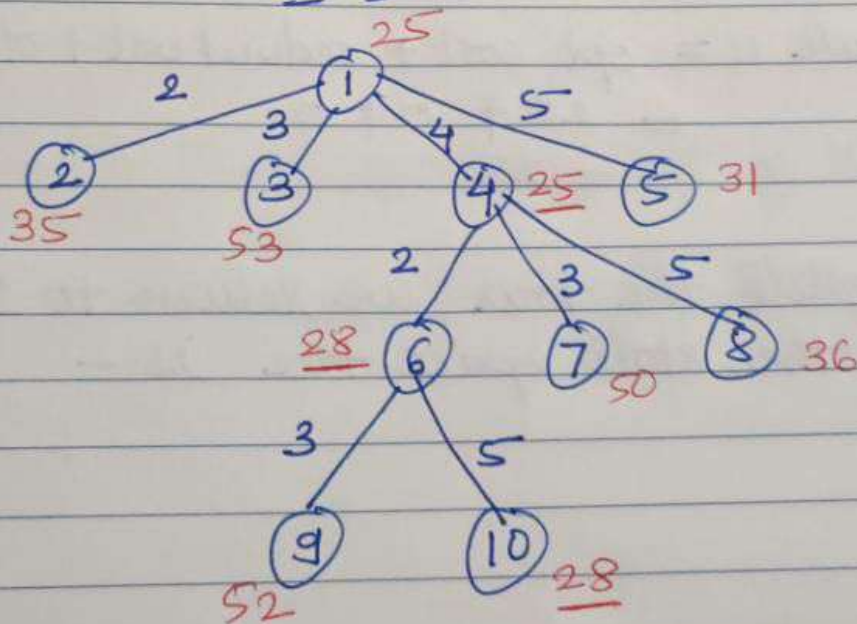 25
1
2 3 4 5
2 3 4 25 5 31
35 53
2 3 5
28 6 7 8 36
50
3 5
9 10
52 28